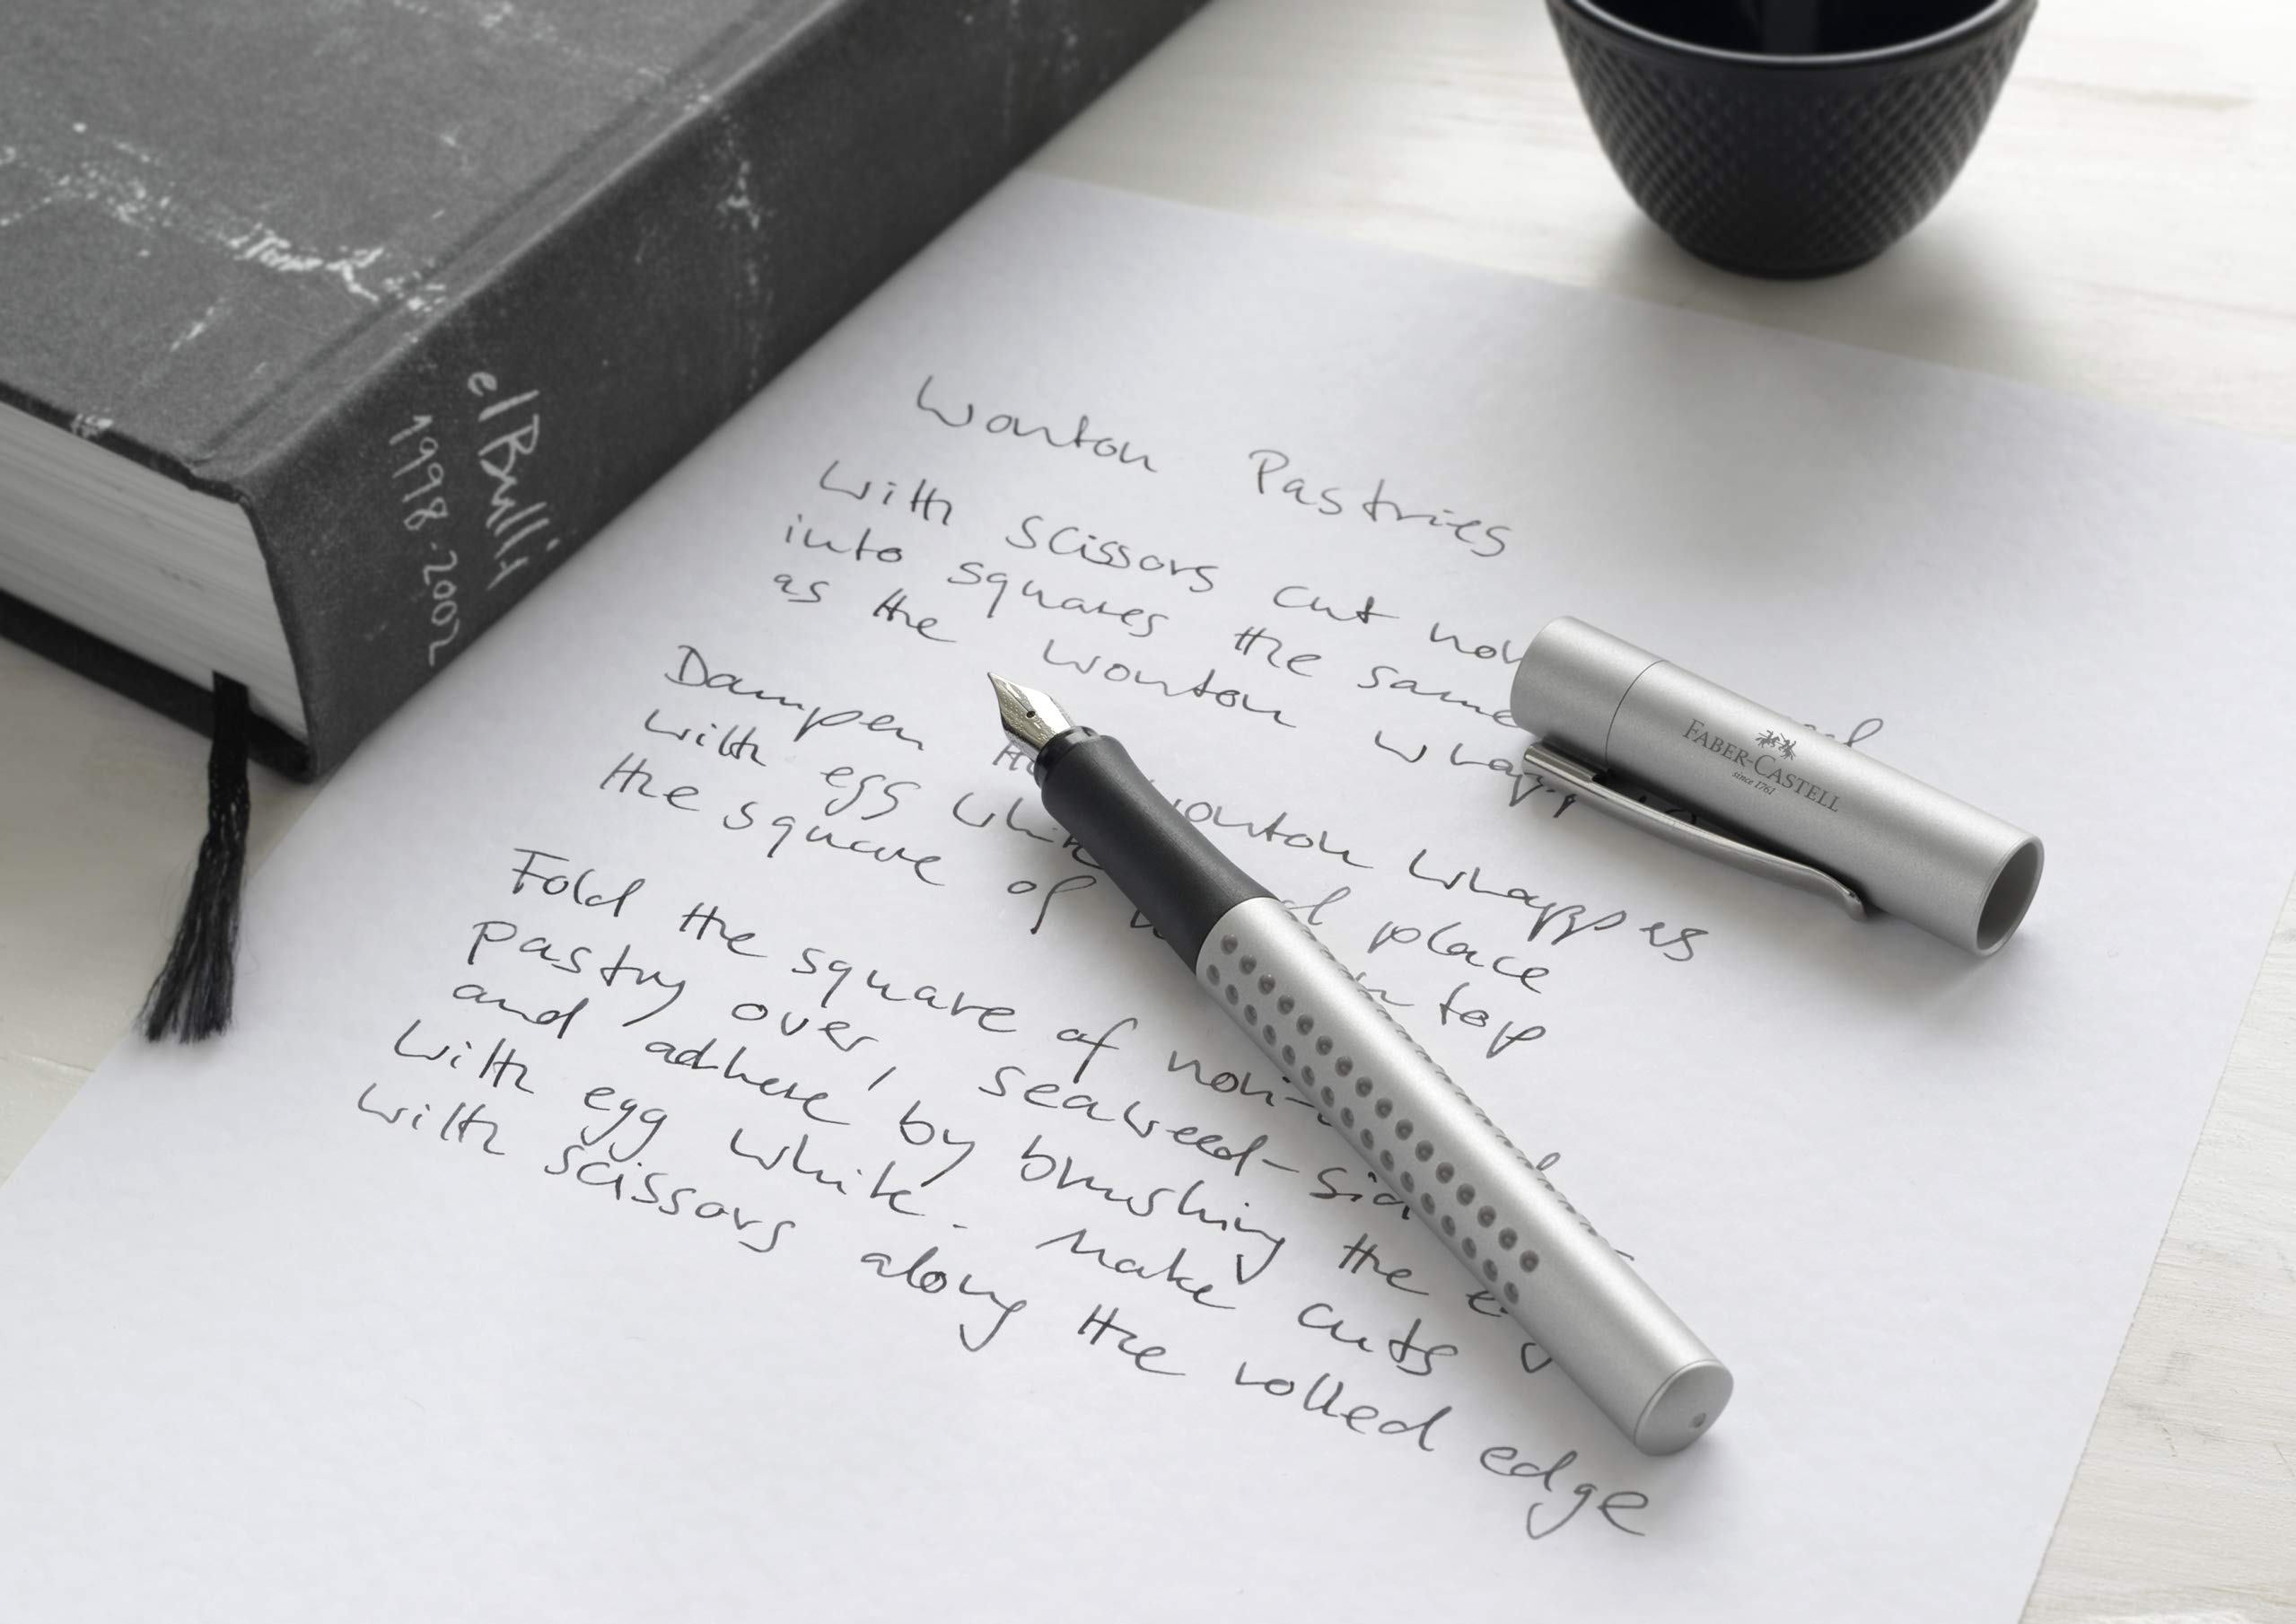 elBulli
1998-2002
Wonton Pastries
With scissors cut
into squares the same
as the wonton
Dampen wonton wrappers
with egg place
the square of top
Fold the square of
pastry over, seaweed-
and adhere by brushing the
with egg white. Make cuts
with scissors along the rolled edge
FABER-CASTELL
since 1761